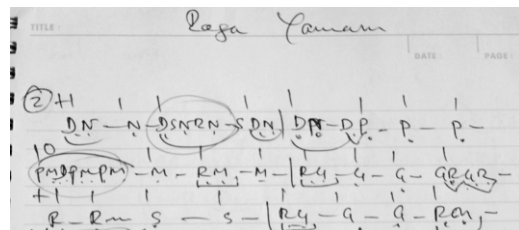 TITLE :
Raga Yaman
DATE : PAGE :
② +1 | | | | | | |
DN - N - DSNRN - S DN | DPN - DP - P - P -
10 | | | | | | |
PMDPMPM - M - RM - M - | RG - G - G - GRGR -
+1 | | | | | | |
R - Rm S - S - | RG - G - G - RGM -